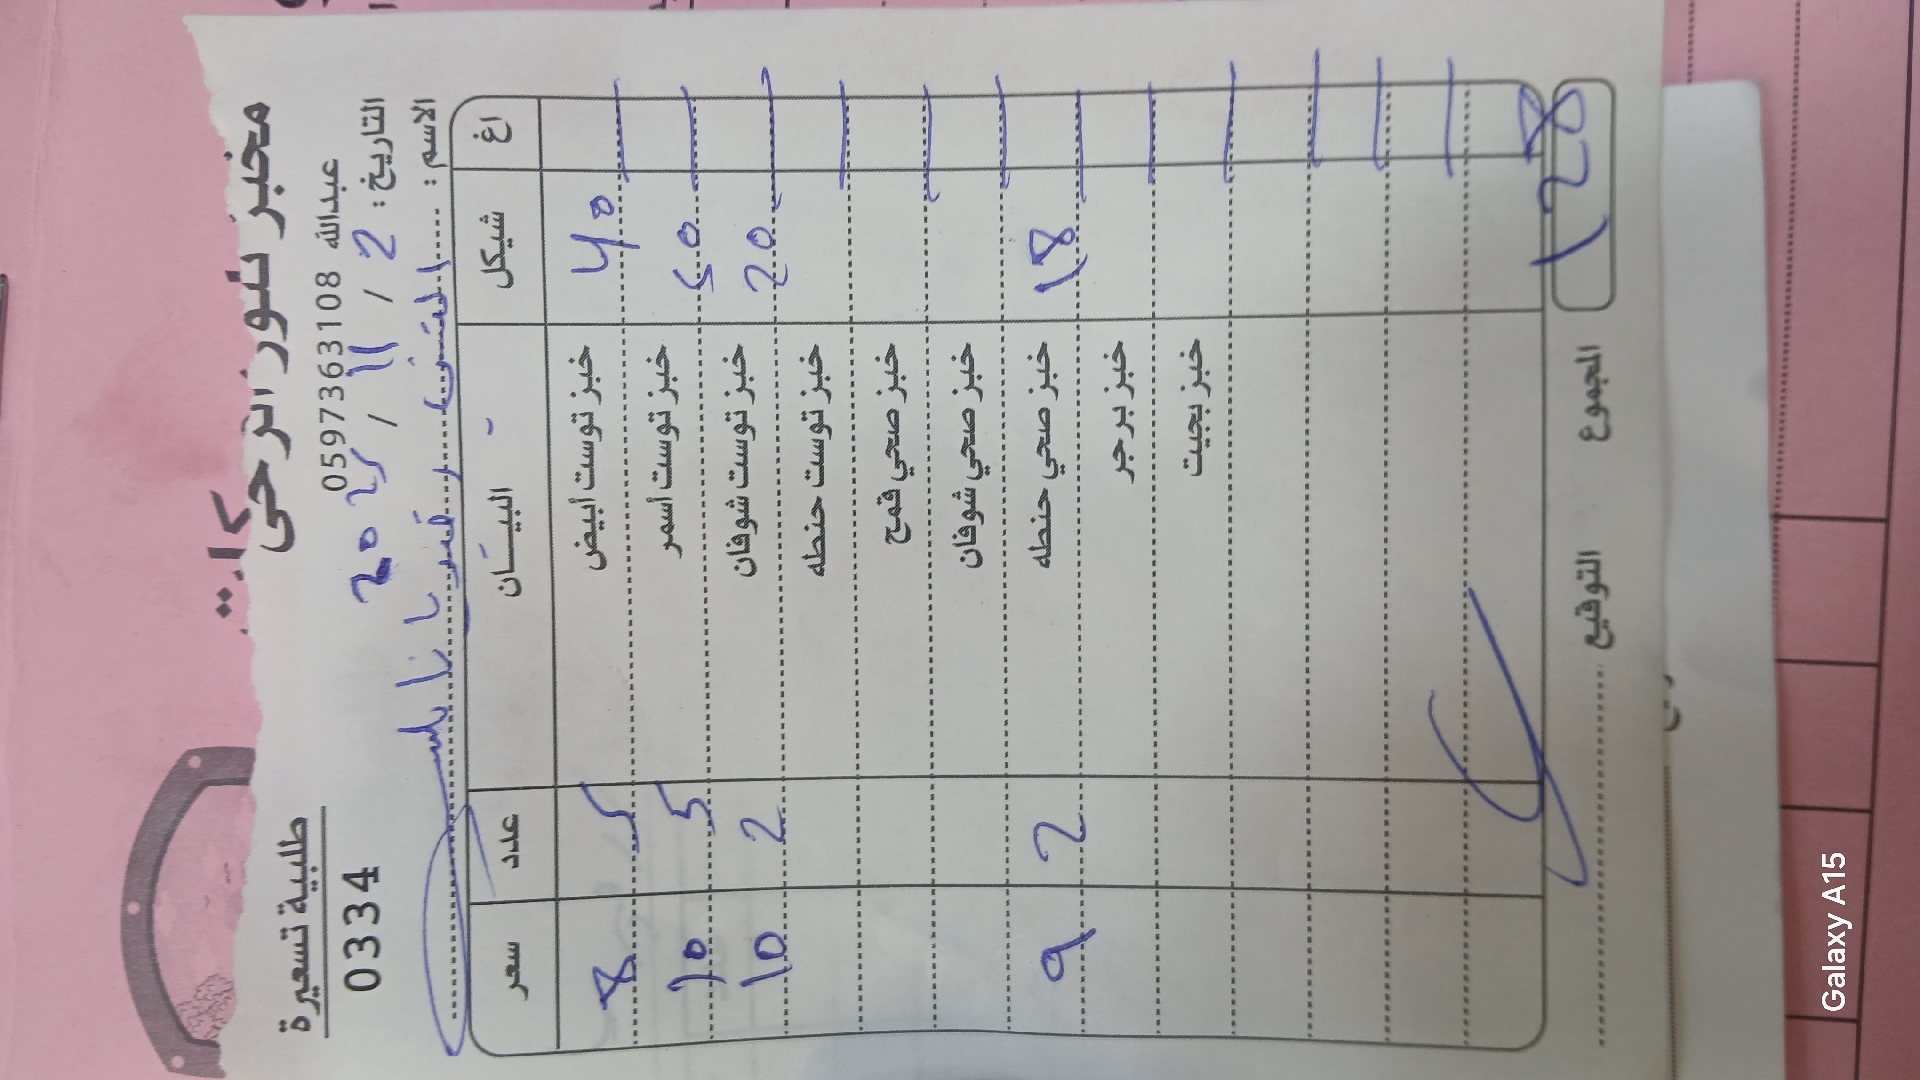 مخبز تنور الرحى
طلبية تسعيرة
0597363108 عبدالله
0334
التاريخ: 2 / 11 / 2025
الاسم:
سعر عدد البيـــان شيكل اغ
8 5 خبز توست أبيض 40
10 5 خبز توست أسمر 50
10 2 خبز توست شوفان 20
خبز توست حنطه
خبز صحي قمح
خبز صحي شوفان
9 2 خبز صحي حنطه 18
خبز برجر
خبز بجيت
التوقيع المجموع 128
Galaxy A15